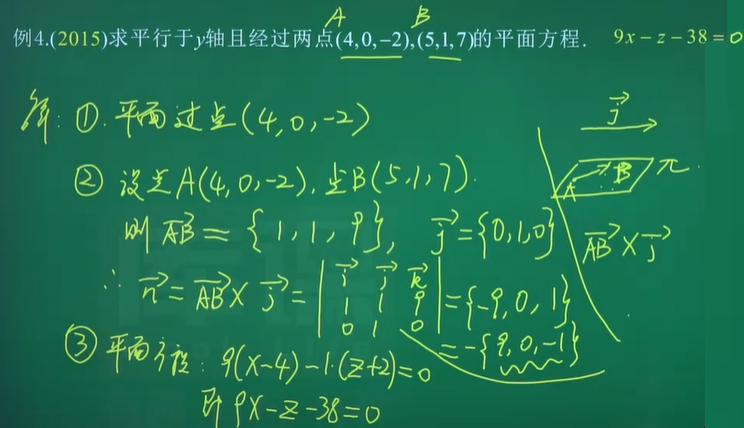 A B
例4.(2015)求平行于y轴且经过两点(4,0,−2),(5,1,7)的平面方程. 9x−z−38=0
解: ①. 平面过点(4,0,−2)
② 设点A(4,0,−2), 点B(5,1,7).
则 AB⃗ = {1,1,9}, j⃗={0,1,0}
∴ n⃗=AB⃗×j⃗=| i⃗ j⃗ k⃗ |
| 1 1 9 |={-9,0,1}
| 0 1 0 |
=-{9,0,-1}
③ 平面方程: 9(x-4)-1·(z+2)=0
即 9x-z-38=0
j⃗
A B π.
AB⃗×j⃗